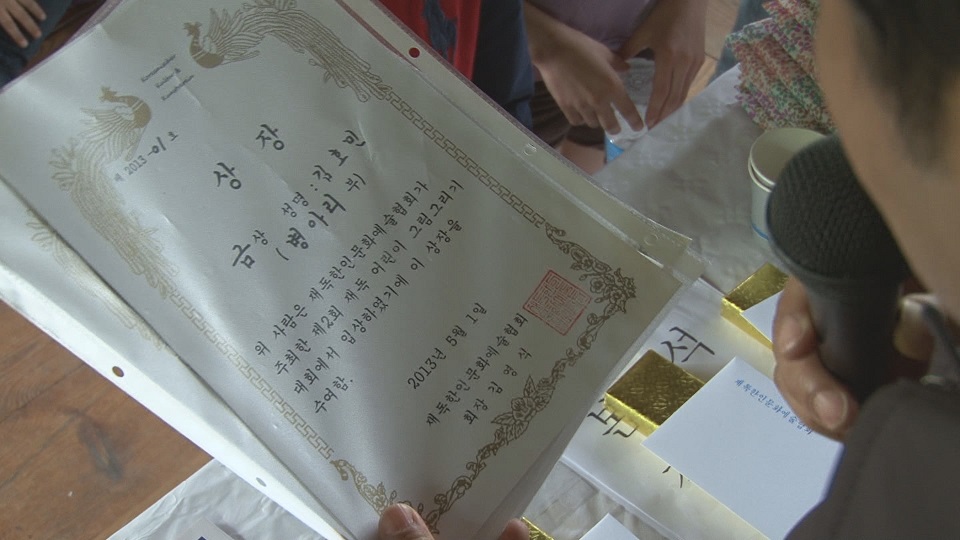 Koreanischer
Kultur &
제 2013-01호
상 장
성명 : 김 효 민
금상 (병아리 부)
위 사람은 재독한인문화예술협회가
주최한 제2회 재독 어린이 그림그리기
대회에서 입상하였기에 이 상장을
수여함.
2013년 5월 1일
재독한인문화예술협회
회장 김 영 식
석
재독한인문화예술협회